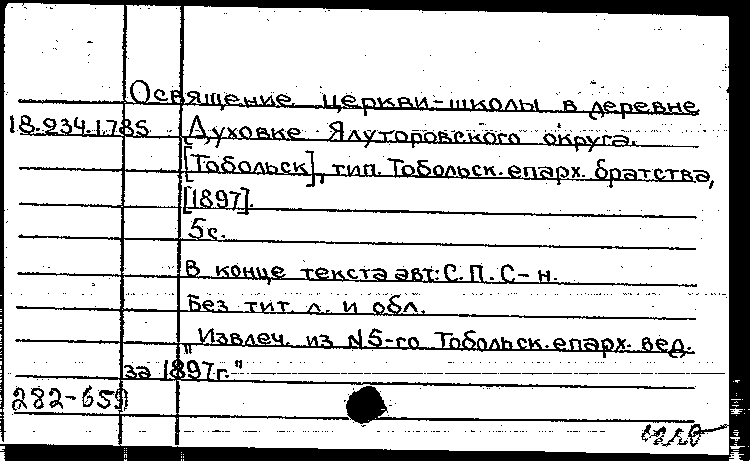 Освящение церкви-школы в деревне
18.234.1.785 Духовке Ялуторовского округа.
[Тобольск], тип. Тобольск. епарх. братства,
[1897].
5с.
В конце текста авт: С. П. С-н.
Без тит. л. и обл.
"Извлеч. из N5-го Тобольск. епарх. вед.
за 1897г."
282-659